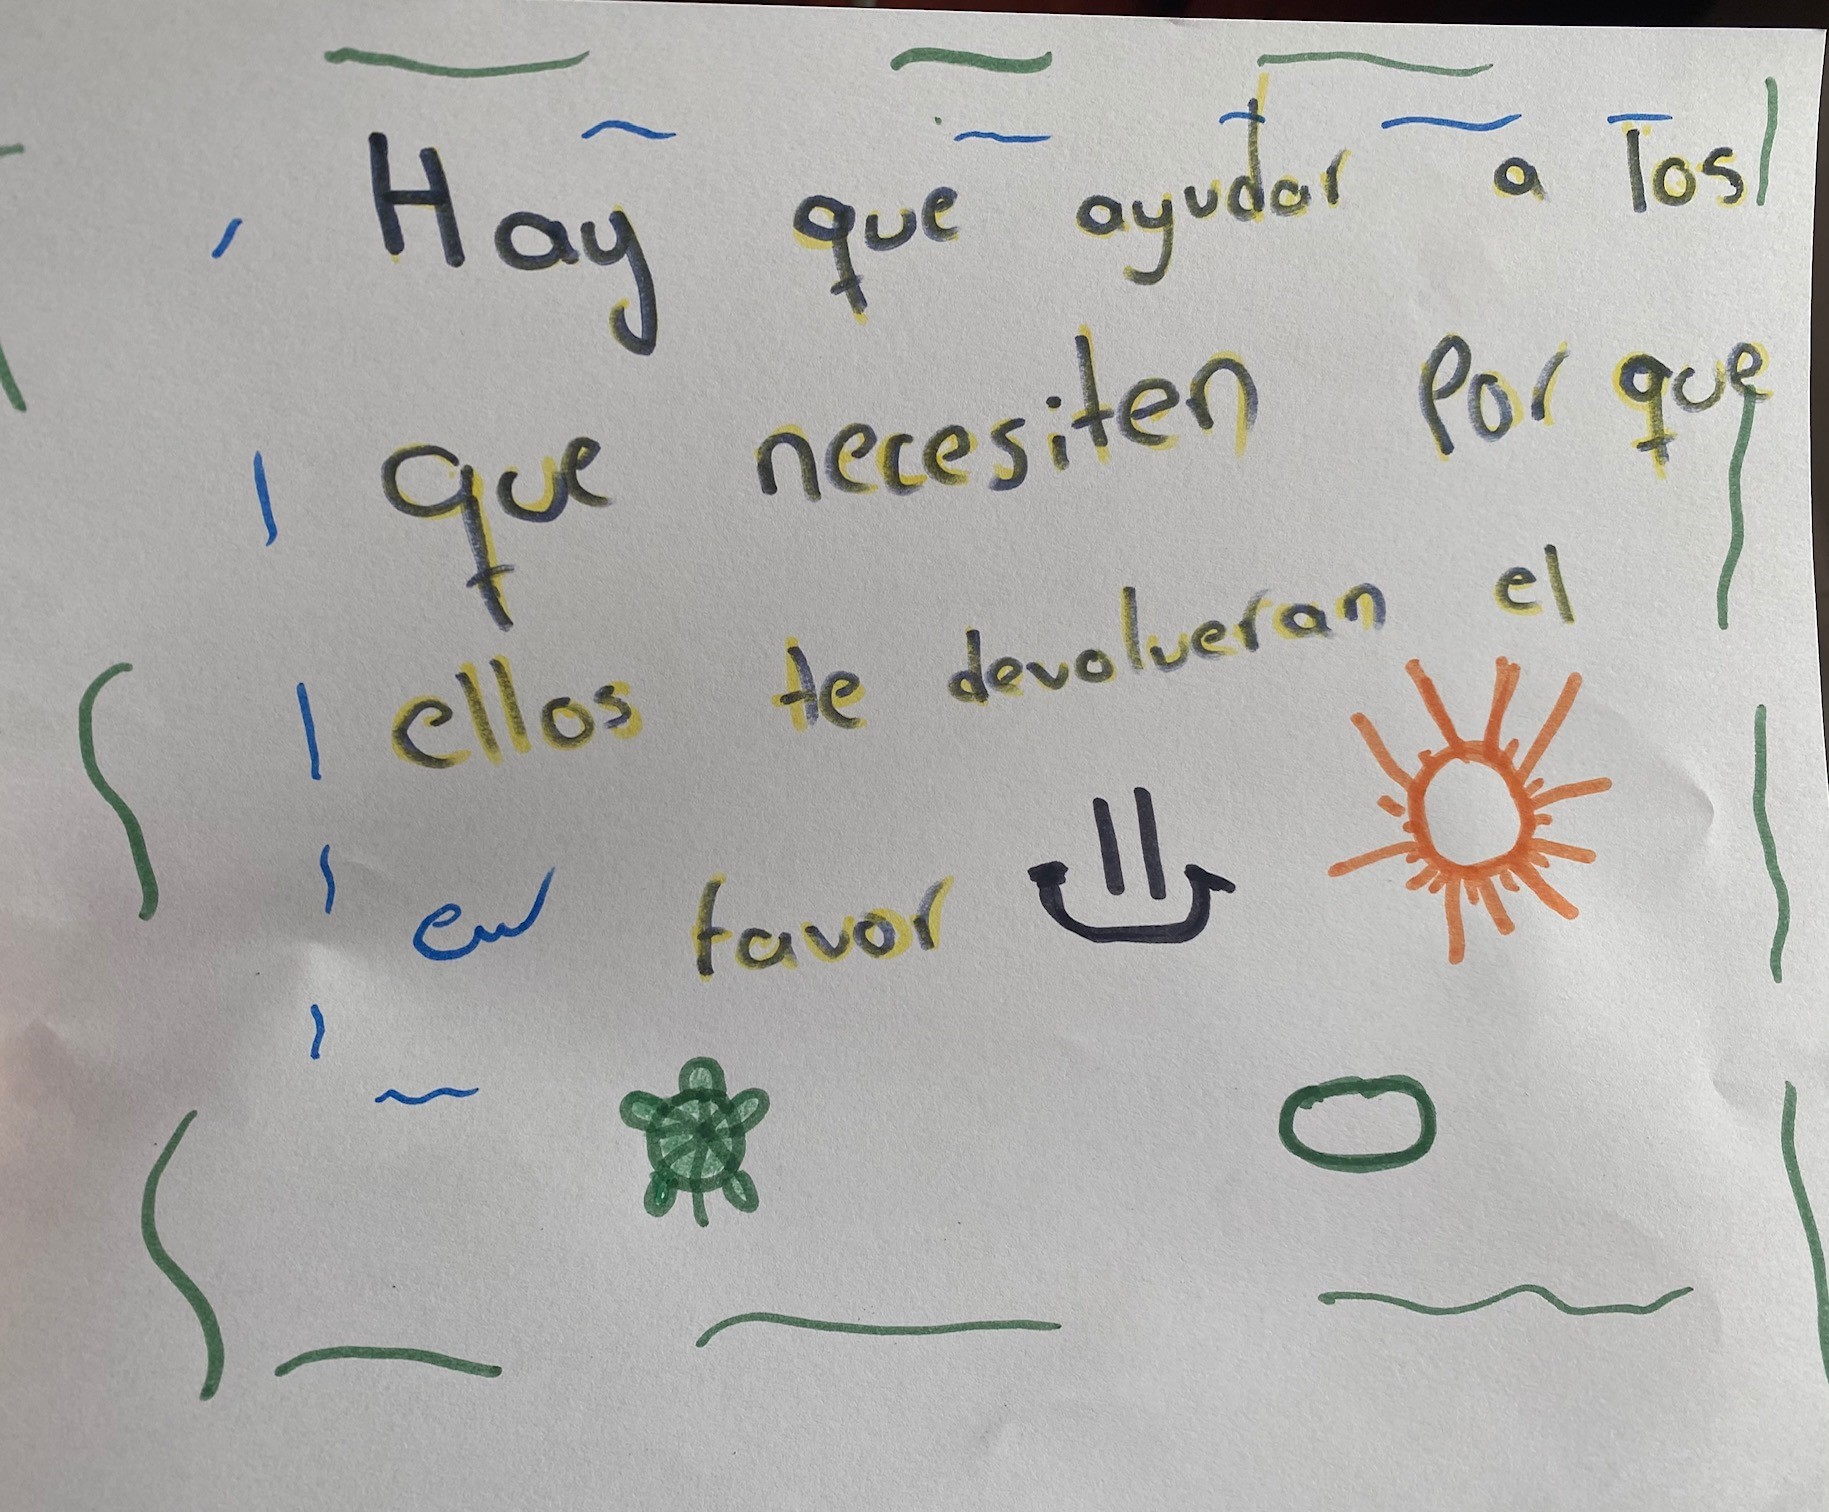 Hay que ayudar a los
que necesiten Por que
ellos te devolveran el
favor